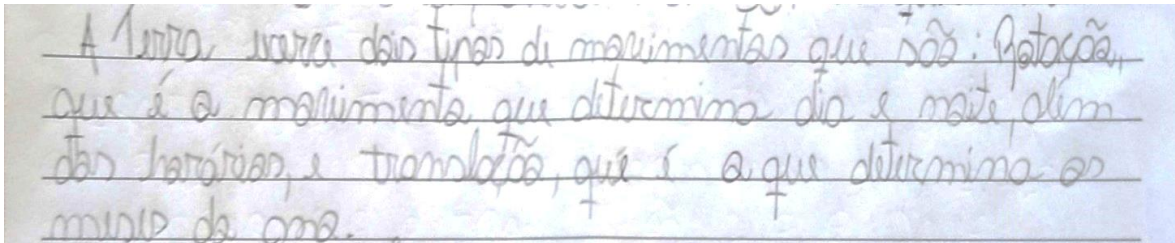 A Terra exerce dois tipos de movimentos que são: Rotação,
que é o movimento que determina dia e noite, além
dos horários, e translação, que é o que determina os
meses do ano.